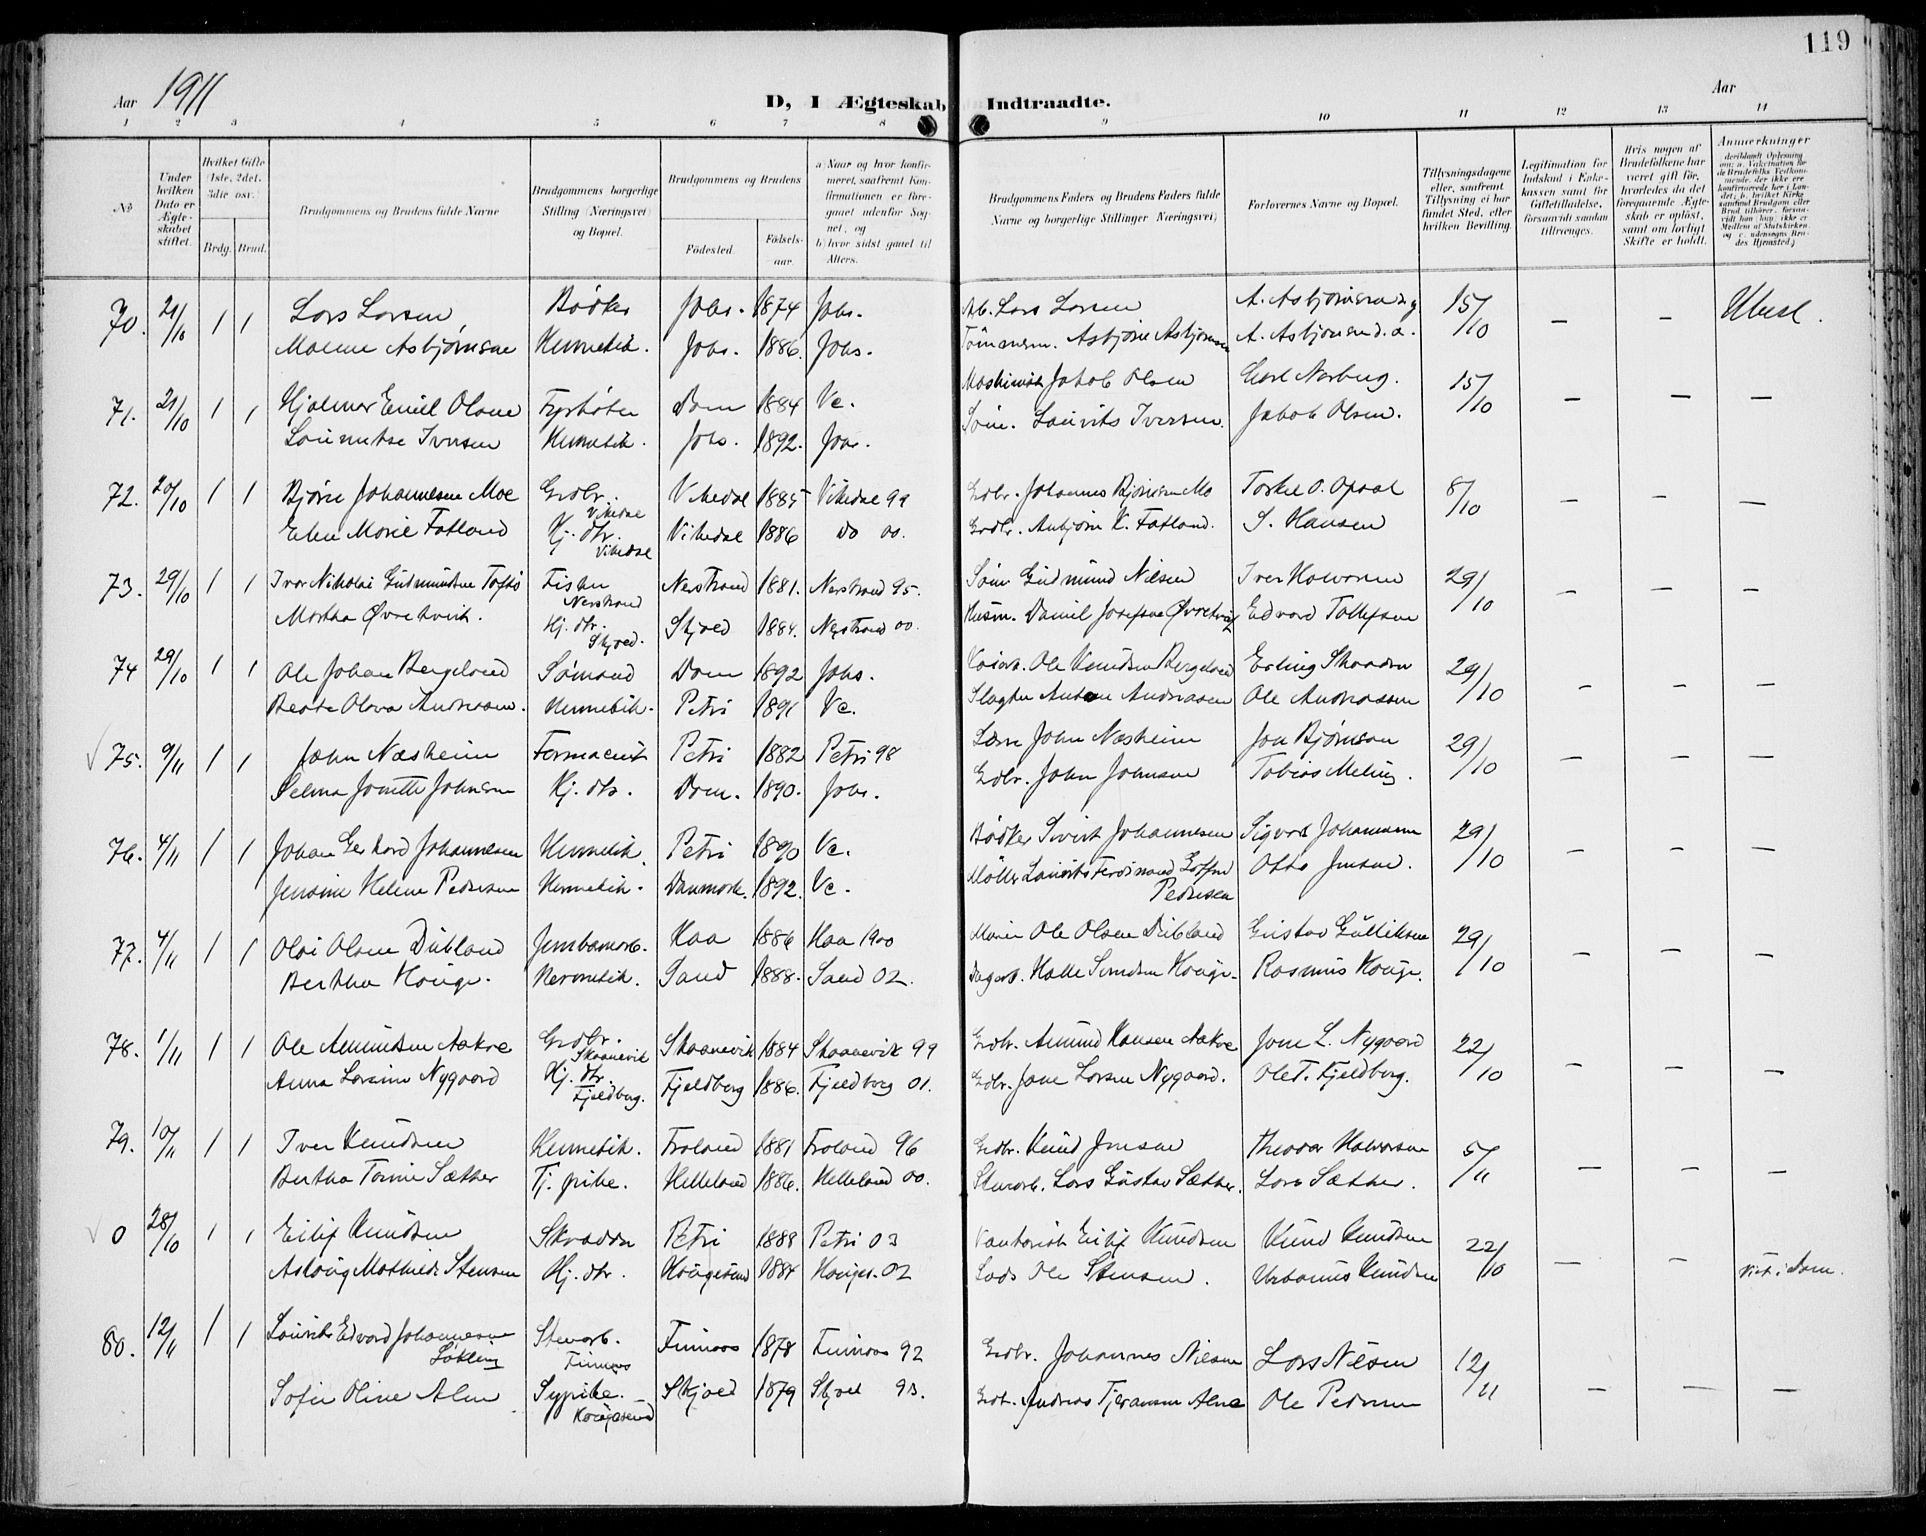 119
Aar 1911
D, I Ægteskab Indtraadte.
Aar
1 2 3 4 5 6 7 8 9 10 11 12 13 14
No
Under hvilken Dato er Ægteskabet stiftet.
Hvilket Gifte (1ste, 2det, 3die osv.
Brdg. Brud.
Brudgommens og Brudens fulde Navne
Brudgommens borgerlige Stilling (Næringsvei) og Bopæl.
Brudgommens og Brudens
Fødested.
Fødselsaar.
a) Naar og hvor konfirmeret, saafremt Konfirmationen er foregaaet udenfor Sognet, og
b) hvor sidst gaaet til Alters.
Brudgommens Faders og Brudens Faders fulde Navne og borgerlige Stillinger Næringsvei)
Forlovernes Navne og Bopæl.
Tillysningsdagene eller, saafremt Tillysning ei har fundet Sted, efter hvilken Bevilling.
Legitimation for Indskud i Enkekassen samt for Giftetilladelse, forsaavidt saadan tiltrænges.
Hvis nogen af Brudefolkene har været gift før, hvorledes da det foregaaende Ægteskab er opløst, samt om lovligt Skifte er holdt.
Anmerkninger
70. 21/10 1 1 Lars Larsen Bødker Johs. 1874 Johs. Arb. Lars Larsen A. Asbjørnsen 15/10 — —
Malene Asbjørnsen Hermetik. Johs. 1886. Johs. Tømmerm. Asbjørn Asbjørnsen A. Asbjørnsen d.æ.
71. 21/10 1 1 Hjalmar Emil Olsen Fyrbøter Dom 1884 Ve. Maskinist Jakob Olsen Carl Norberg. 15/10 — — —
Iversen Hermetik. Johs. 1892. Johs. Søm. Lauvits Iversen. Jakob Olsen.
72. 20/10 1 1 Bjørn Johannesen Moe Grdbr. Vikedal Vikedal 1885 Vikedal 99 Grdbr. Johannes Bjørnsen Mo Torkel O. Opsal 8/10 — — —
Elen Marie Fatland Hj. dtr. Vikedal Vikedal 1886 Do 00. Grdbr. Anbjørn K. Fatland. S. Hansen
73. 29/10 1 1 Ivar Nikolai Gudmundsen Toftø Fisker Nerstrand Nerstrand 1881. Nerstrand 95. Søm Gudmund Nilsen Iver Halvorsen 29/10 — — —
Martha Øvrehvik. Hj. dtr. Skjold. Skjold 1884. Nerstrand 00. Husm. Daniel Josefsen Øvrehvik Edvard Tollefsen
74 29/10 1 1 Ole Johan Bergeland Sømand Dom 1892 Johs. Ole Knudsen Bergeland Erling Skaadn 29/10 — — —
Berta Olava Andreasen. Hermetik. Petri 1891 Ve. Slagter Anton Andreasen Ole Andreassen
√ 75. 9/11 1 1 John Næsheim Farmaceut Petri 1882 Petri 98 Lærer John Næsheim Jon Bjørnson 29/10 — — —
Selma Jonette Johnsen Hj. dtr. Dom. 1890. Johs. Grdbr. John Johnsen Tobias Meling.
76. 4/11 1 1 Johan Gerhard Johannesen Hermetik. Petri 1890 Ve. Bødker Sivert Johannesen Sigvart Johannesen 29/10 — — —
Jensine Helene Pedersen Hermetik. Danmark. 1892. Ve. Møller Lauvits Ferdinand Pedersen Otto Jensen.
77. 4/11 1 1 Olai Olsen Dubland Jernbanearb. Haa 1886 Haa 1900 Murer Ole Olsen Dubland Gustav Gulliksen 29/10 — — —
Bertha Hauge. Hermetik. Sand 1888. Sand 02. Dagarb. Halle Hauge Rasmus Hauge.
78. 1/11 1 1 Ole Amundsen Aakre Grdbr. Skaanevik Skaanevik 1884 Skaanevik 99 Grdbr. Amund Hansen Aakre Jone L. Nygaard 22/10 — — —
Anna Larsine Nygaard Hj. dtr. Fjeldberg. Fjeldberg 1886. Fjeldberg 01. Grdbr. Jone Larsen Nygaard. Ole T. Fjeldberg.
79. 10/11 1 1 Iver Knudsen Hermetik. Froland 1881 Froland 96 Grdbr. Knud Jensen Theodor Halvorsen 5/11 — — —
Bertha Tomine Sæther Tj. pike. Helleland 1886. Helleland 00. Stenarb. Lars Gustav Sæther. Lars Sæther.
√ 0 28/10 1 1 Eilif Knudsen Skrædder Petri 1889 Petri 03 Eilif Knudsen Knud Knudsen 22/10 — —
Aslaug Mathilde Stensen Hj. dtr. Haugesund 1884 Hauges. 02 Lods Ole Stensen. Urbanus Knudsen Viet i Dom.
80. 12/11 1 1 Lauvits Edvard Johannesen Løkling Stenarb. Finnaas Finnaas 1878 Finnaas 92 Grdbr. Johannes Nilsen Lars Nilsen 12/11 — — —
Sofie Oline Alne Sypike. Haugesund Skjold 1879 Skjold 93. Grdbr. Andreas Tjeransen Alne Ole Pedersen